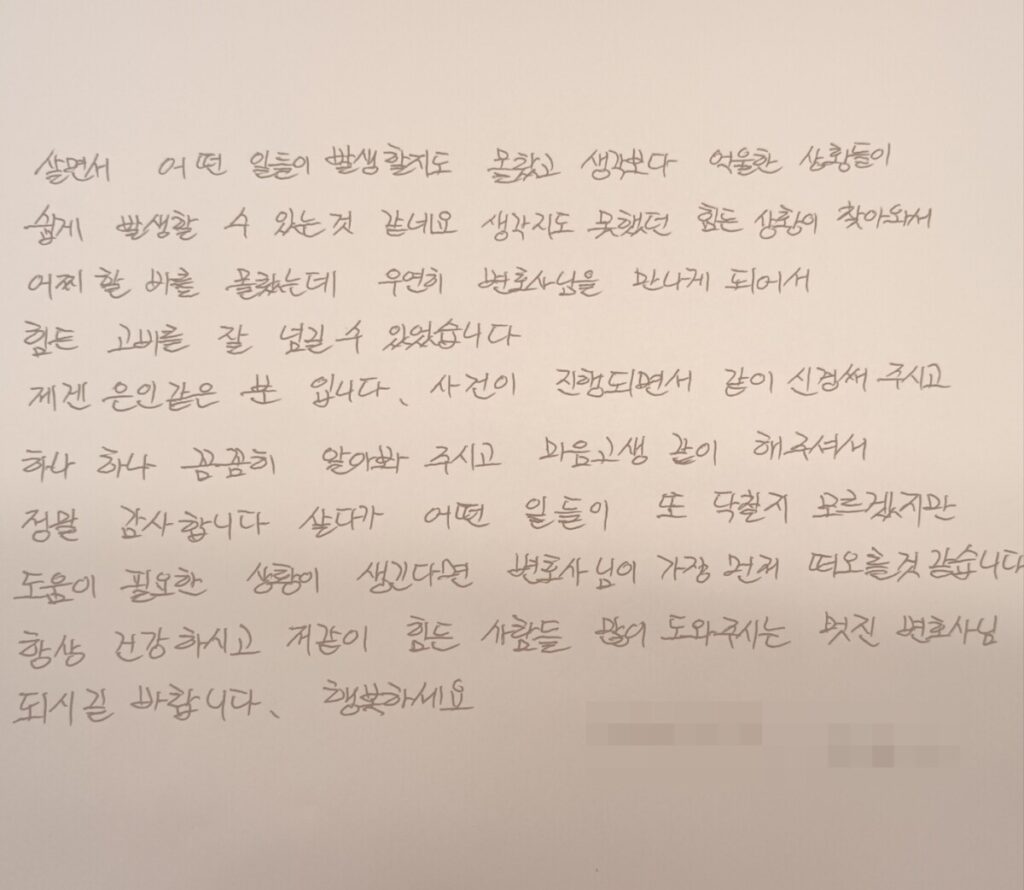 살면서 어떤 일들이 발생할지도 몰랐고 생각보다 억울한 상황들이
쉽게 발생할 수 있는것 같네요 생각지도 못했던 힘든 상황이 찾아와서
어찌 할 바를 몰랐는데 우연히 변호사님을 만나게 되어서
힘든 고비를 잘 넘길 수 있었습니다
제겐 은인같은 분 입니다、 사건이 진행되면서 같이 신경써 주시고
하나 하나 꼼꼼히 알아봐 주시고 마음고생 같이 해주셔서
정말 감사합니다 살다가 어떤 일들이 또 닥칠지 모르겠지만
도움이 필요한 상황이 생긴다면 변호사님이 가장 먼저 떠오를것 같습니다
항상 건강하시고 저같이 힘든 사람들 많이 도와주시는 멋진 변호사님
되시길 바랍니다、 행복하세요